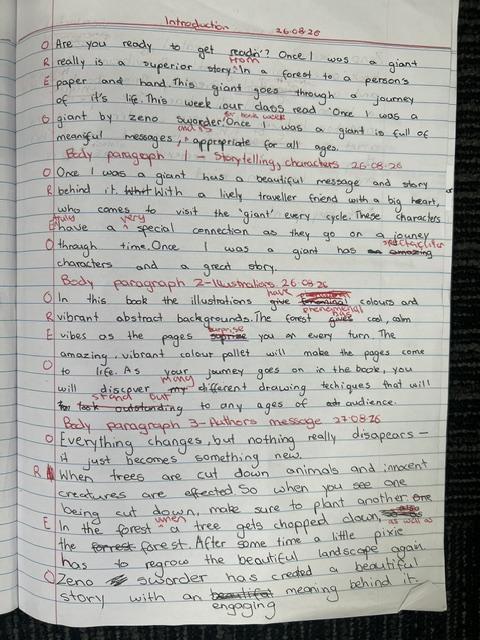 Introduction 26.08.26
O Are you ready to get readin'? Once I was a giant
R really is a superior story. From In a forest to a person's
E paper and hand. This giant goes through a journey
of it's life. This week our class read 'Once I was a
O giant by zeno sworder' for book week. Once I was a giant is full of
meaningful messages, and is appropriate for all ages.
Body paragraph 1 - Storytelling, characters 26-08-26
O Once I was a giant has a beautiful message and story
R behind it. With a lively traveller friend with a big heart,
who comes to visit the 'giant' every cycle. These characters
E truly have a very special connection as they go on a jouney
O through time. Once I was a giant has amazing
characters and a great story.
Body paragraph 2 - Illustrations 26.08.26
O In this book the illustrations give have colours and
R vibrant abstract backgrounds. The phenephenal forest gives has cool, calm
E vibes as the pages surprise you on every turn. The
amazing, vibrant colour pallet will make the pages come
O to life. As your journey goes on in the book, you
will discover my many different drawing techiques that will
stand out to any ages of audience.
Body paragraph 3 - Authors message 27.08.26
O Everything changes, but nothing really disapears -
it just becomes something new.
R When trees are cut down animals and innocent
creatures are affected. So when you see one
being cut down, make sure to plant another one
E In the forest when a tree gets chopped down, as well as
the forrest forest. After some time a little pixie
has to regrow the beautiful landscape again.
O Zeno sworder has created a beautiful
story with an beautiful meaning behind it.
engaging